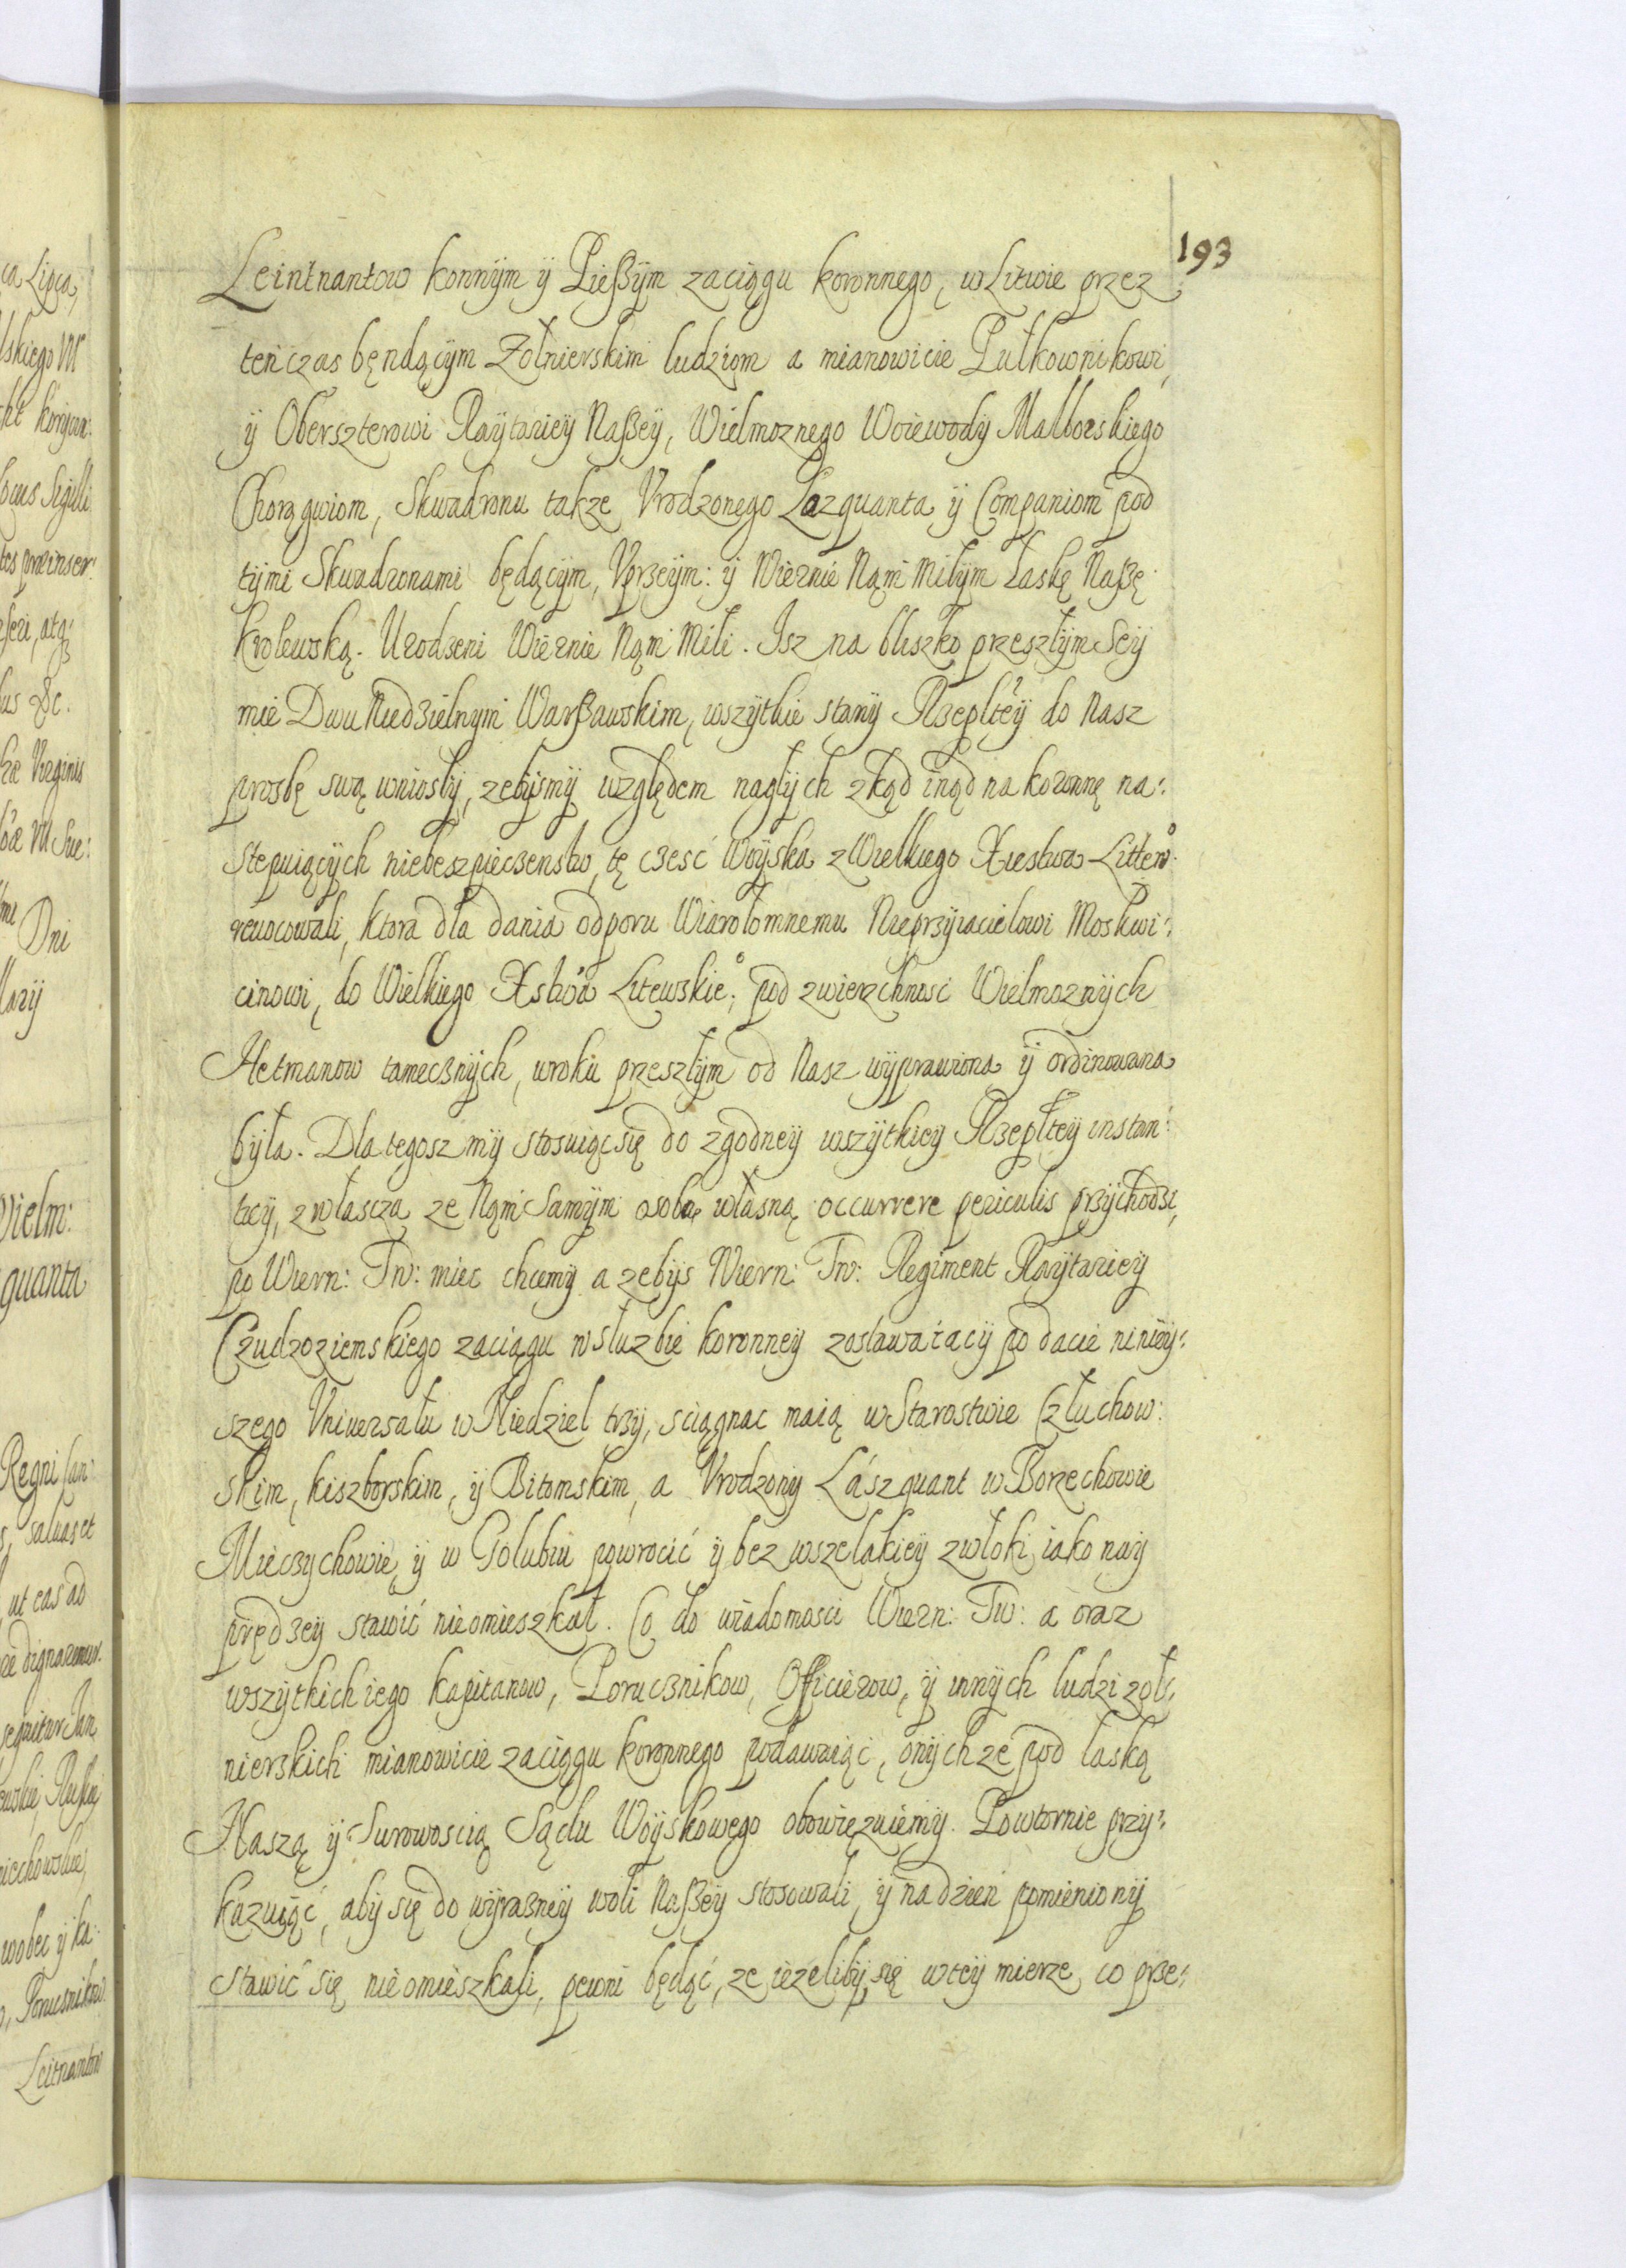 193
Leintnantow konnÿm ÿ Pießÿm zaciągu koronnego, w Litwie przez
ten czas będącÿm Zołnierskim ludziom a mianowicie Pułkownikowi,
ÿ Oberszterowi Raÿtariey Naßeÿ, Wielmoznego Woiewodÿ Malborskiego
Chorągwiom, Skwadronu takze Vrodzonego Lazquanta ÿ Companiom pod
tÿmi Skwadronami będącÿm, Vprzeÿm: ÿ Wiernie Nąm Miłÿm Łaskę Naßę
Krolewską. Urodzeni Wiernie Nąm Mili. Isz na bliszko przeszłÿm Seÿ
mie Dwu Niedzielnym Warßawskim, wszÿtkie stanÿ Rzeplteÿ do Nasz
prosbę swą wniosłÿ, zebÿsmÿ względem nagłÿch zkąd inąd na koronnę na:
stepuiącÿch niebeszpieczenstw, tę czesć Woÿska z Wielkiego Xiestwa Littew
revocowali, ktora dla dania odporu Wiarołomnemu Nieprzÿiacielowi Moskwi:
cinowi, do Wielkiego Xstwa Litewskie, pod zwierzchnosć Wielmoznÿch
Hetmanow tamecznÿch, w roku przeszłÿm od Nasz wÿprawiona ÿ ordinowana
bÿła. Dla tegosz mÿ stosuiąc się do zgodneÿ wszÿtkieÿ Rzeplteÿ instan:
tieÿ, zwłascza ze Nąm Samÿm osobą własną occurrere periculis przÿchodzi,
po Wiern: Tw: miec chcemÿ a zebÿs Wiern: Tw: Regiment Raÿtarieÿ
Czudzoziemskiego zaciągu w słuzbie koronneÿ zostawaiacÿ po dacie ninieÿ:
szego Vniversału w Niedziel trzÿ, sciągnac maią w Starostwie Człuchow:
skim, kiszborskim, ÿ Bitomskim, a Vrodzonÿ Lászquant w Borzechowie
Mieczychowie, ÿ w Golubiu powrocić ÿ bez wszelakieÿ zwłoki, iako naÿ
prędzeÿ stawić nieomieszkał. Co do wiadomosci Wiern: Tw: a oraz
wszÿtkich iego kapitanow, Porucznikow, Officierow, ÿ innÿch ludzi zoł:
nierskich mianowicie zaciągu koronnego podawaiąc, onÿchze pod łaską
Naszą ÿ Surowoscią Sądu Woÿskowego obowięzuiemÿ. Powtornie przÿ:
kazuiąć, abÿ się do wÿrazneÿ woli Naßeÿ stosowali, ÿ na dzien pomienionÿ
stawić się nieomieszkali, pewni będąć, ze iezelibÿ się w teÿ mierze co prze: